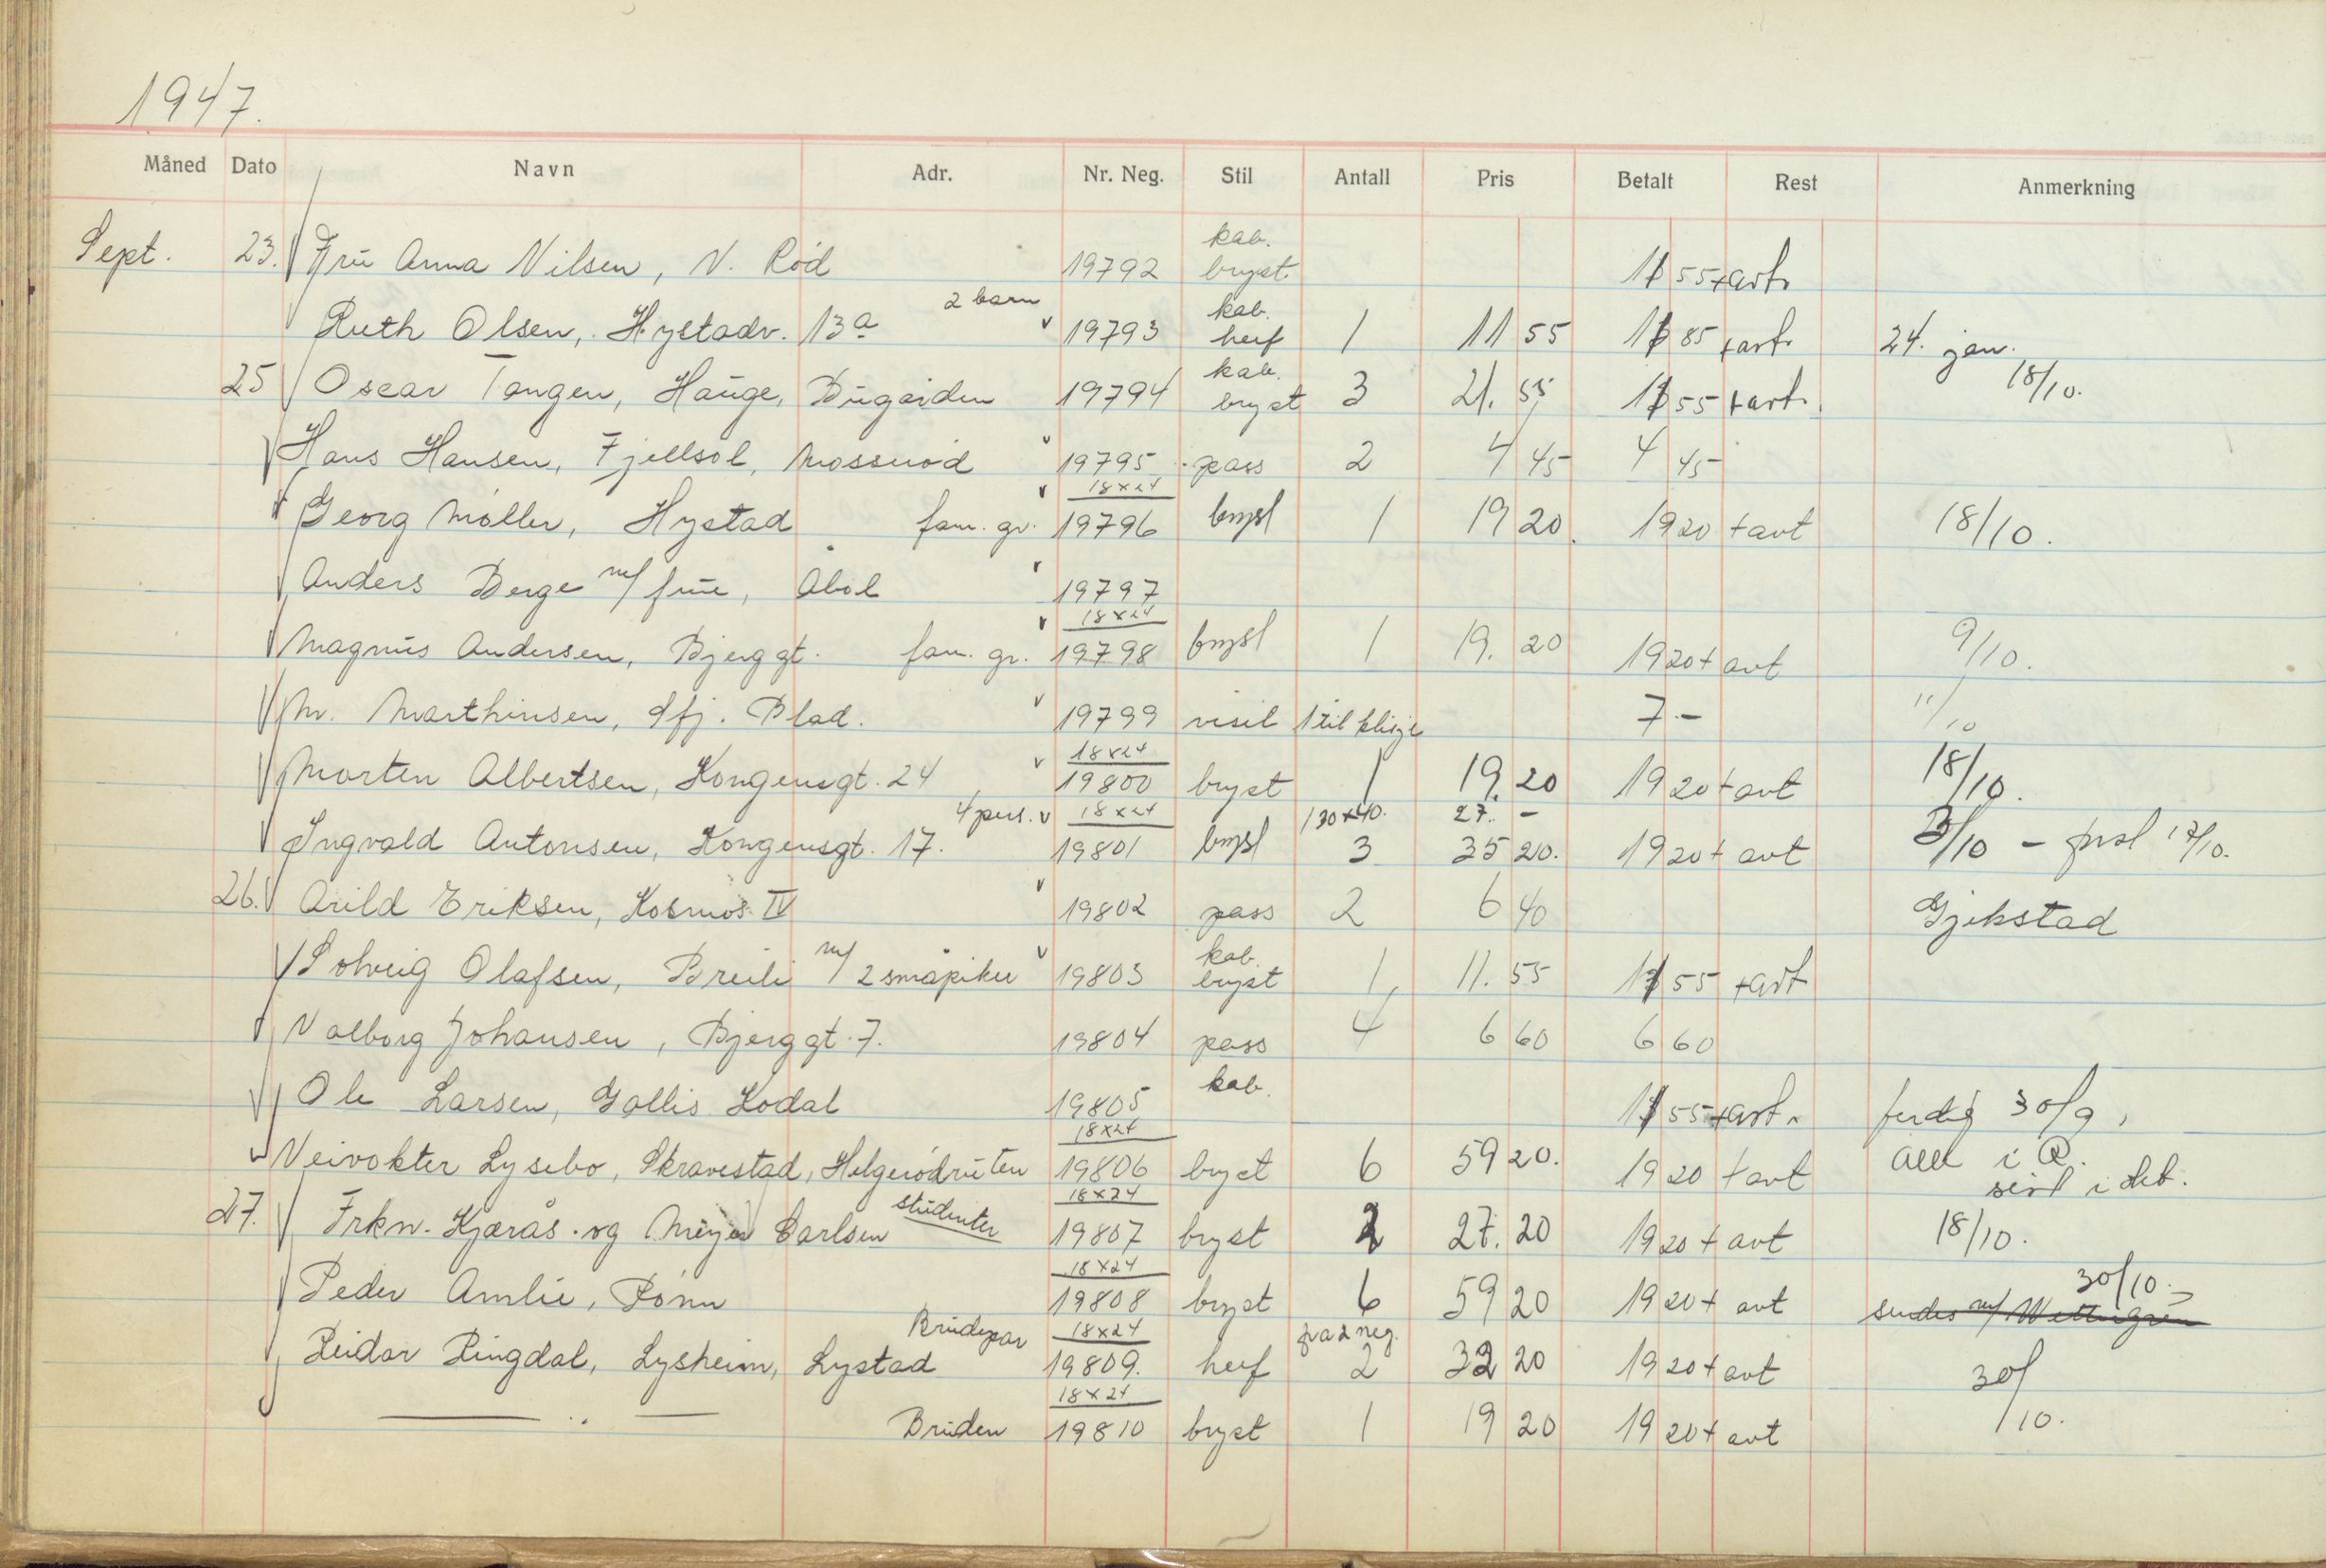 1947.
Måned Dato Navn Adr. Nr. Neg. Stil Antall Pris Betalt Rest Anmerkning
Sept. 23. Fru Anna Nilsen, N. Rød 19792 kab. bryst. 11 55 + avt.
Ruth Olsen, Hystadv. 13a 2 barn 19793 kab. helf 1 11 55 11 85 + avt. 24. jan.
25 Oscar Tangen, Hauge, Bugården 19794 kab. bryst 3 21. 55 11 55 + avt. 18/10.
Hans Hansen, Fjellsol, Mosserød 19795 pass 2 4 45 4 45
Georg Møller, Hystad fam. gr. 18x24 19796 bryst 1 19 20 19 20 + avt 18/10.
Anders Berge m/ frue, Åbol 19797
Magnus Andersen, Bjerggt. fam. gr. 18x24 19798 bryst 1 19. 20 19 20 + avt 9/10.
M. Marthinsen, Sfj. Blad. 19799 visit 1 til klisje 7.- 11/10
Morten Albertsen, Kongensgt. 24 18x24 19800 bryst 1 19. 20 19 20 + avt 18/10.
Ingvald Antonsen, Kongensgt. 17. 4 pers. 18x24 19801 bryst 1 30x40. 3 27.- 35 20. 19 20 + avt 3/10 - 17/10.
26. Arild Eriksen, Kosmos IV 19802 pass 2 6 40 Gjekstad
Solveig Olafsen, Breili m/ 2 småpiker 19803 kab. bryst 1 11. 55 11 55 + avt
Valborg Johansen, Bjerggt. 7. 19804 pass 4 6 60 6 60
Ole Larsen, Gallis Kodal 19805 kab. 11 55 + avt. ferdig 30/9,
Veivokter Lysebo, Skravestad, Helgerødruten 18x24 19806 bryst 6 59 20. 19 20 + avt i
27. Frkn. Kjærås. og Carlsen studenter 18x24 19807 bryst 2 27. 20 19 20 + avt 18/10.
Peder Amlie, Rønn 18x24 19808 bryst 6 59 20 19 20 + avt 30/10. sendes m/
Reidar Ringdal, Lysheim, Lystad Brudepar 18x24 19809. helf fra 2 neg. 2 32 20 19 20 + avt 30/10.
— .. — Bruden 18x24 19810 bryst 1 19 20 19 20 + avt